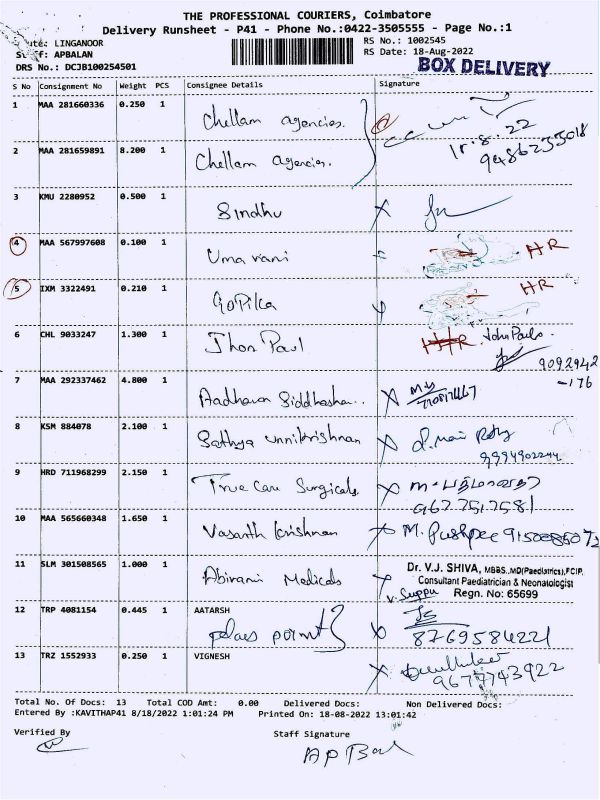 THE PROFESSIONAL COURIERS, Coimbatore
Delivery Runsheet - P41 - Phone No.:0422-3505555 - Page No.:1
LINGANOOR
RS No.: 1002545
APBALAN
RS Date: 18-Aug-2022
DRS No.: DCJB100254501
BOX DELIVERY
S No Consignment No Weight PCS Consignee Details Signature
1 MAA 281660336 0.250 1 Chellam agencies.
18.8.22
9486235018
2 MAA 281659891 8.200 1 Chellam agencies.
3 KMU 2280952 0.500 1 Sindhu
4 MAA 567997608 0.100 1 Uma rani HR
5 IXM 3322491 0.210 1 Gopika HR
6 CHL 9033247 1.300 1 Jhon Paul John Paulo.
9092942
-176
7 MAA 292337462 4.800 1 Aadhava
8 KSM 884078 2.100 1 Sathya unnikrishnan
9994902244
9 HRD 711968299 2.150 1 True Care Surgicals
9677517581
10 MAA 565660348 1.650 1 Vasanth krishnan M. Pushpa 9150085072
11 SLM 301508565 1.000 1 Abirami Medicals
Dr. V.J. SHIVA, MBBS.,MD(Paediatrics),FCIP,
Consultant Paediatrician & Neonatologist
V. Suppu Regn. No: 65699
12 TRP 4081154 0.445 1 AATARSH
point
8769584221
13 TRZ 1552933 0.250 1 VIGNESH
9677743922
Total No. Of Docs: 13 Total COD Amt: 0.00 Delivered Docs: Non Delivered Docs:
Entered By :KAVITHAP41 8/18/2022 1:01:24 PM Printed On: 18-08-2022 13:01:42
Verified By Staff Signature
AP Bal